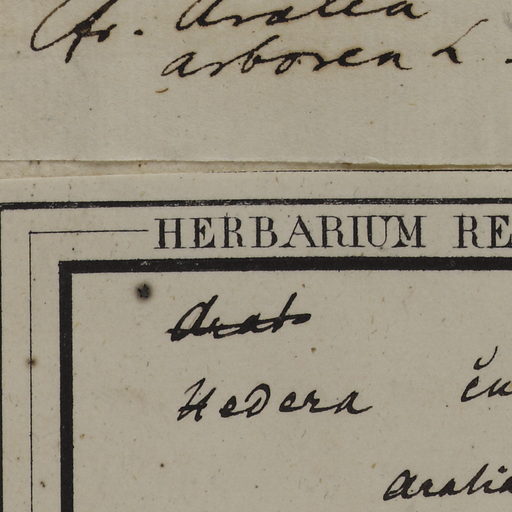 fr. Aralea
arborea L.
HERBARIUM RE
Arat
Hedera cu
Aralia